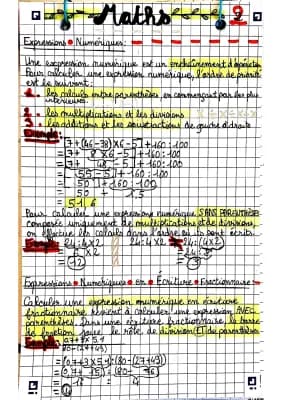 Maths
Expressions Numériques:
Une expression numérique est un enchaînement d'opérations
Pour calculer une expression numérique, l'ordre de priorité
est le suivant:
1. les calculs entre parenthèses, en commençant par les plus
intérieures.
2. les multiplications et les divisions
3. les additions et les soustractions de gauche à droite
Exemple:
[7+(46-38)×6-5]+160:100
= [7+ 8 ×6-5]+160:100
= [7+ 48 -5]+160:100
= [55-5]+160:100
= 50 ]+160:100
= 50 +
= 51,6
Pour calculer une expression numérique SANS PARENTHÈSES
composée uniquement de multiplications et de divisions,
on effectue les calculs dans l'ordre où ils sont écrits.
24:4×2 24:4×2 24:(4×2)
= 6×2 = 24:8
= 12 = 3
Expressions Numériques en Écriture Fractionnaire
Calculer une expression numérique en écriture
fractionnaire revient à calculer une expression AVEC
parenthèses. Dans une écriture fractionnaire, la barre
de fraction joue le rôle de division ET de parenthèses.
Exemple
80-(27+43)